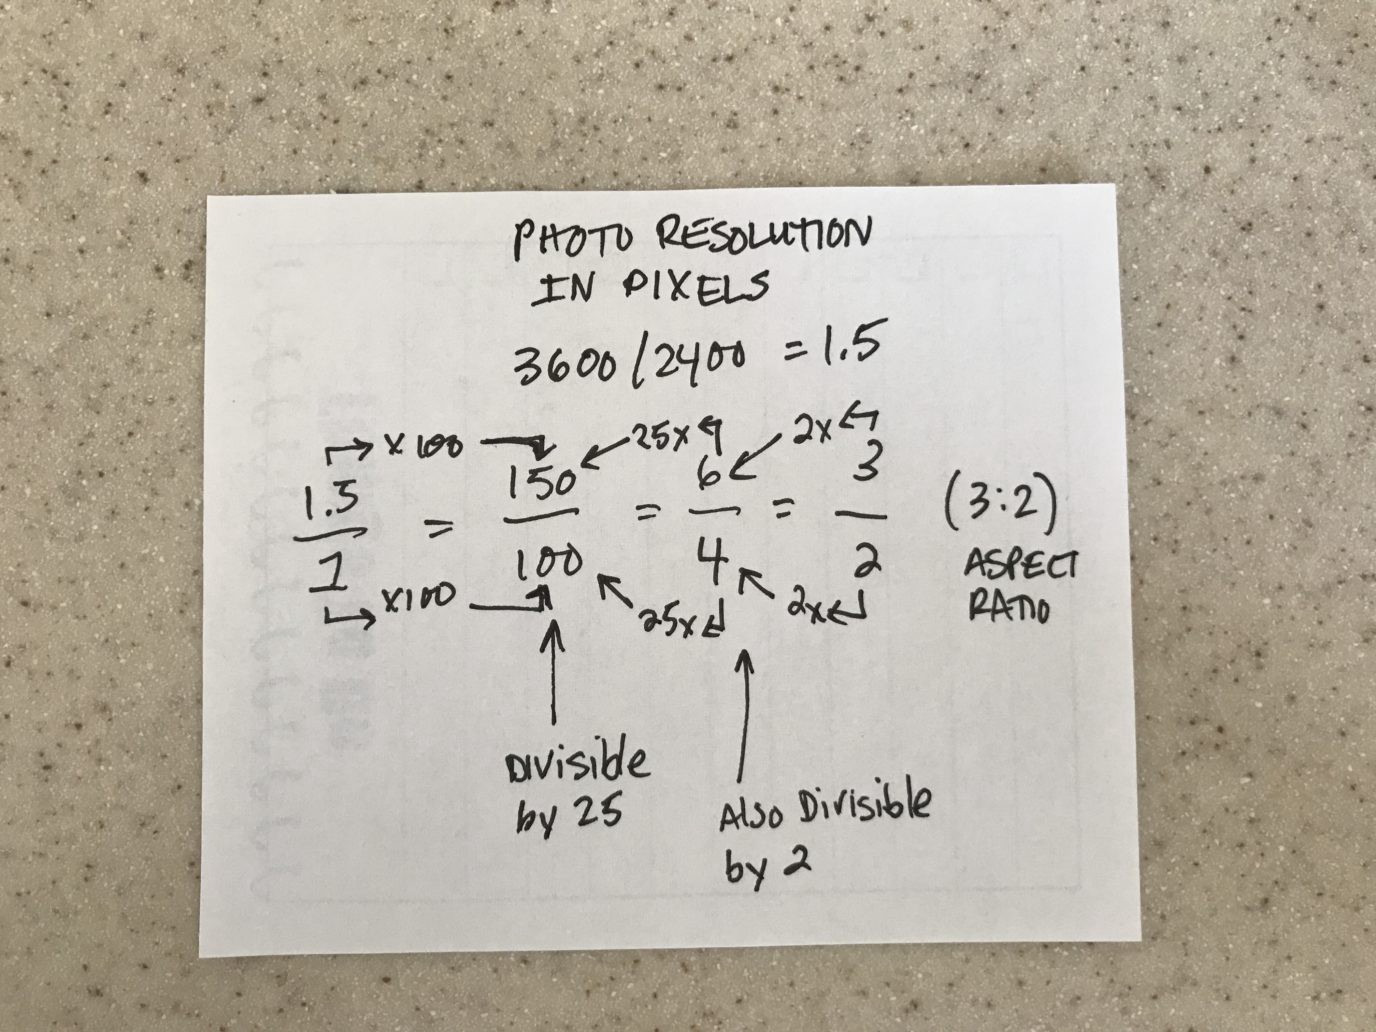 PHOTO RESOLUTION
IN PIXELS
3600/2400 = 1.5
x100 25x 2x
1.5/1 = 150/100 = 6/4 = 3/2 (3:2)
x100 25x 2x
ASPECT
RATIO
DIVISIBLE
by 25
Also Divisible
by 2